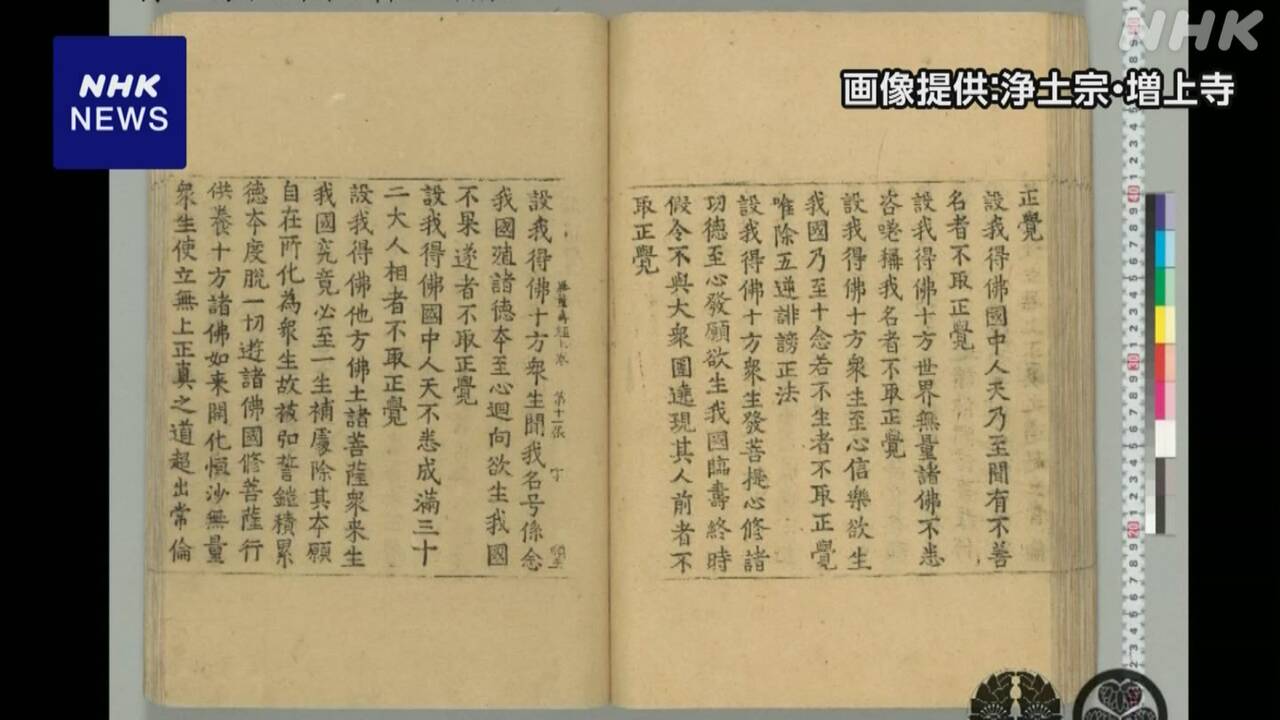 NHK
NEWS
NHK
画像提供:浄土宗・増上寺
正覺
設我得佛國中人天乃至聞有不善
名者不取正覺
設我得佛十方世界無量諸佛不悉
咨嗟稱我名者不取正覺
設我得佛十方衆生至心信樂欲生
我國乃至十念若不生者不取正覺
唯除五逆誹謗正法
設我得佛十方衆生發菩提心修諸
功德至心發願欲生我國臨壽終時
假令不與大衆圍遶現其人前者不
取正覺
第十一張
設我得佛十方衆生聞我名号係念
我國殖諸德夲至心迴向欲生我國
不果遂者不取正覺
設我得佛國中人天不悉成滿三十
二大人相者不取正覺
設我得佛他方佛土諸菩薩衆来生
我國究竟必至一生補處除其夲願
自在所化為衆生故被弘誓鎧積累
德夲度脫一切遊諸佛國修菩薩行
供養十方諸佛如来開化恒沙無量
衆生使立無上正真之道超出常倫